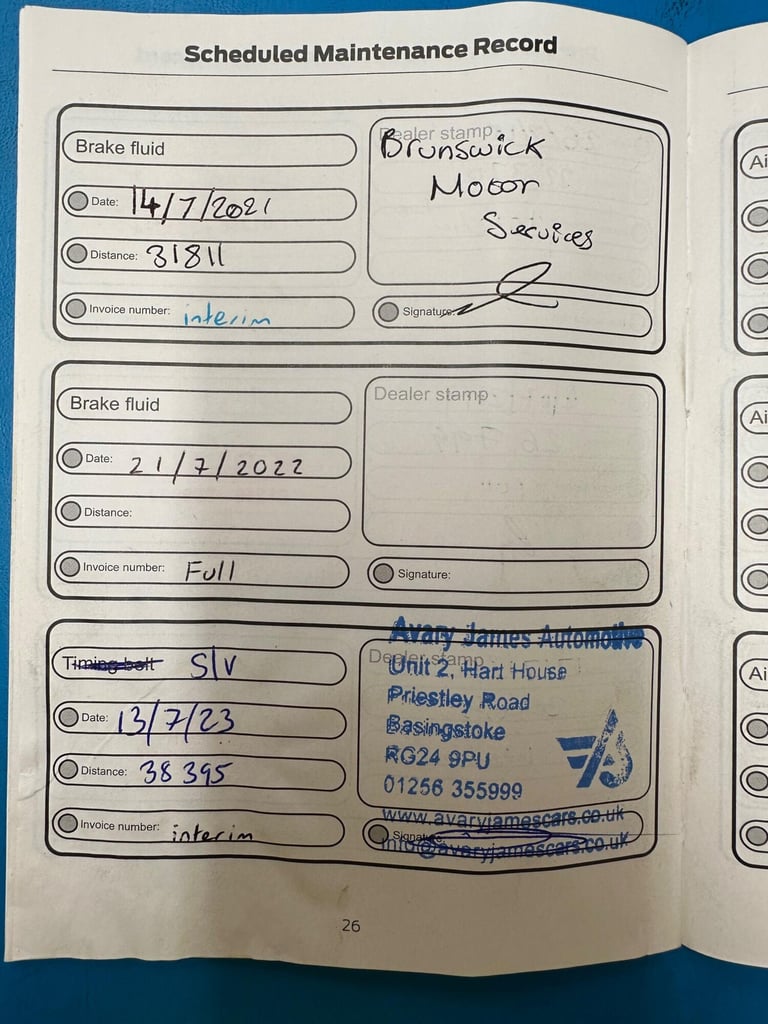 Scheduled Maintenance Record
Brake fluid
Date: 14/7/2021
Distance: 31811
Invoice number: interim
Dealer stamp
Brunswick
Motor
Services
Signature:
Brake fluid
Date: 21/7/2022
Distance:
Invoice number: Full
Dealer stamp
Signature:
Timing belt S/V
Date: 13/7/23
Distance: 38395
Invoice number: interim
Dealer stamp
Avary James Automotive
Unit 2, Hart House
Priestley Road
Basingstoke
RG24 9PU
01256 355999
www.avaryjamescars.co.uk
Signature
info@avaryjamescars.co.uk
26
Ai
Ai
Ai